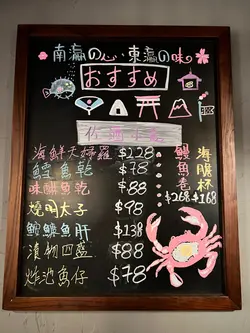 南瀛の心·東瀛の味
おすすめ
佐酒小品
海鮮天婦羅 $228
魚乾 $78
味醂魚乾 $88
燒明太子 $98
鮟鱇魚肝 $138
漬物四盛 $88
炸池魚仔 $78
鰻魚卷 $268
海膽杯 $168